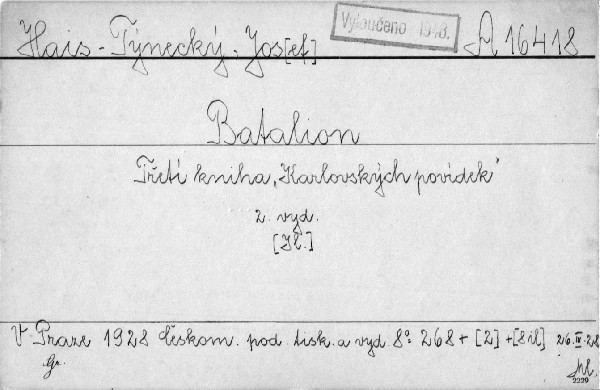 Hais-Týnecký, Jos[ef]
Vyloučeno 1948.
A 16418
Batalion
Třetí kniha „Karlovských povídek"
2. vyd.
[Il.]
V Praze 1928 Českom. pod. tisk. a vyd. 8° 268 + [2] + [8 il] 26.IV.28
Gr.
2229